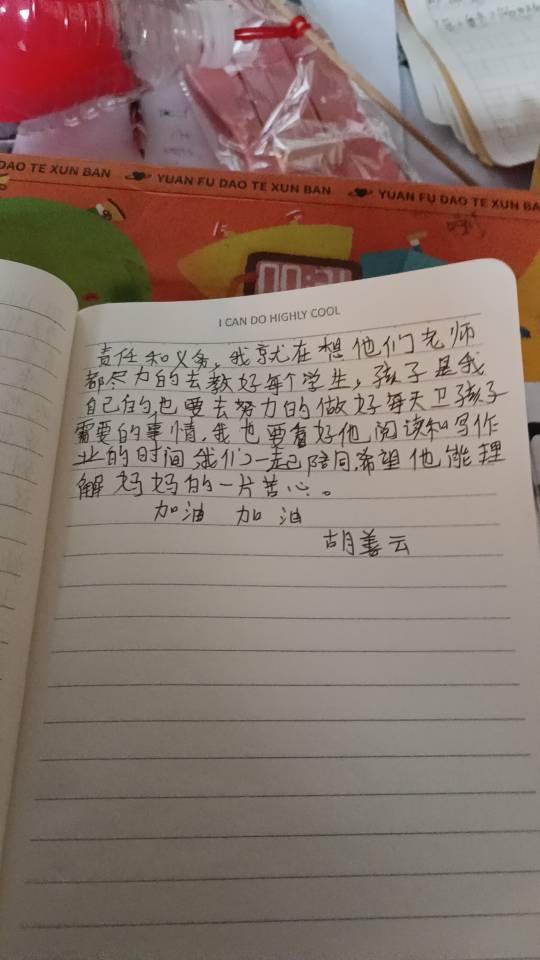 DAO TE XUN BAN
YUAN FU DAO TE XUN BAN
YUAN FU DAO TE XUN BA
I CAN DO HIGHLY COOL
责任和义务,我就在想他们老师
都尽力的去教好每个学生,孩子是我
自己的,也要去努力的做好每天卫孩子
需要的事情,我也要看好他,阅读和写作
业的时间,我们一起陪同,希望他能理
解妈妈的一片苦心。
加油 加油
胡善云